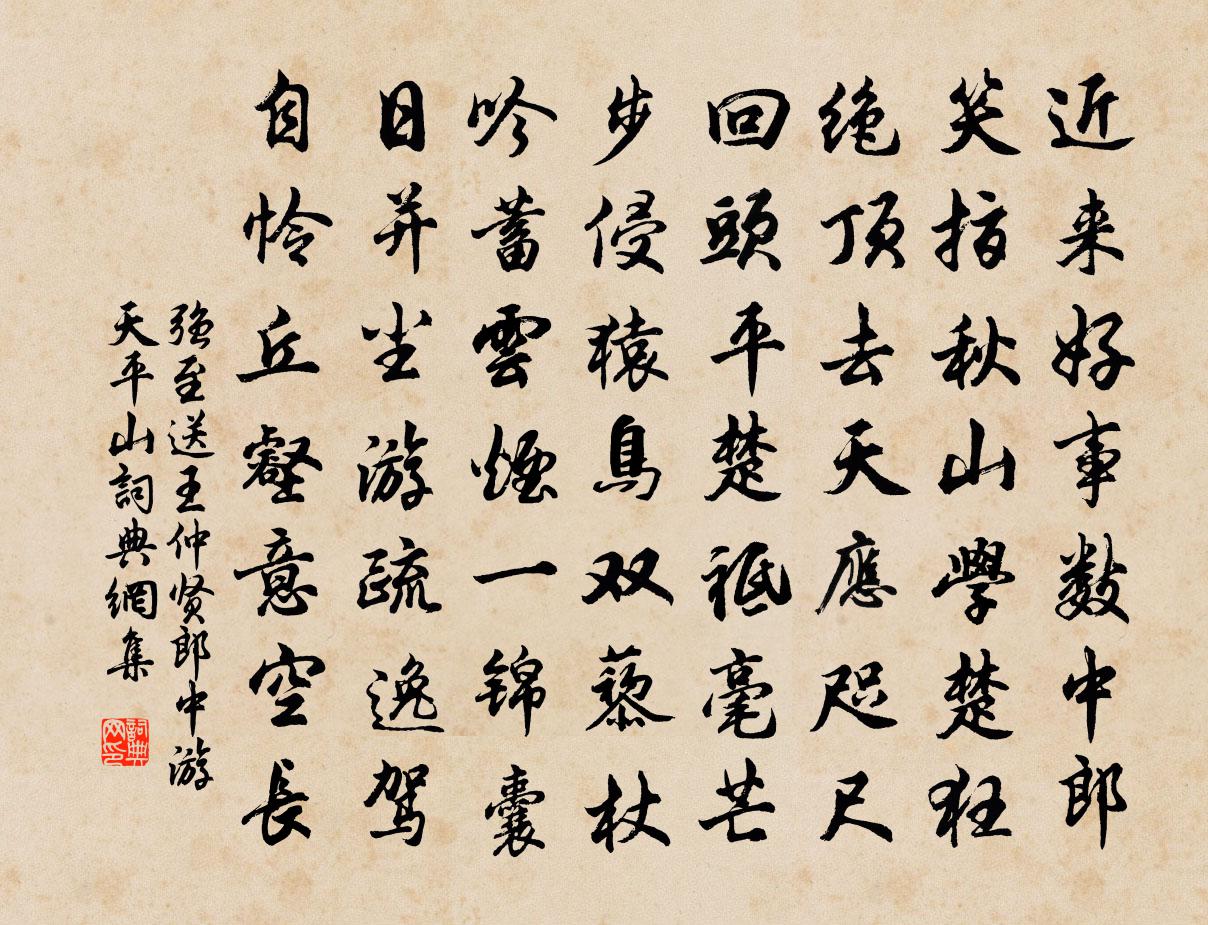 近来好事数中郎
笑指秋山學楚狂
绝顶去天應咫尺
回頭平楚祗毫芒
步侵猿鳥双藜杖
吟蓄雲煙一锦囊
日并坐游疏逸驾
自怜丘壑意空長
强至送王仲贤郎中游
天平山詞典網集
詞典
网印